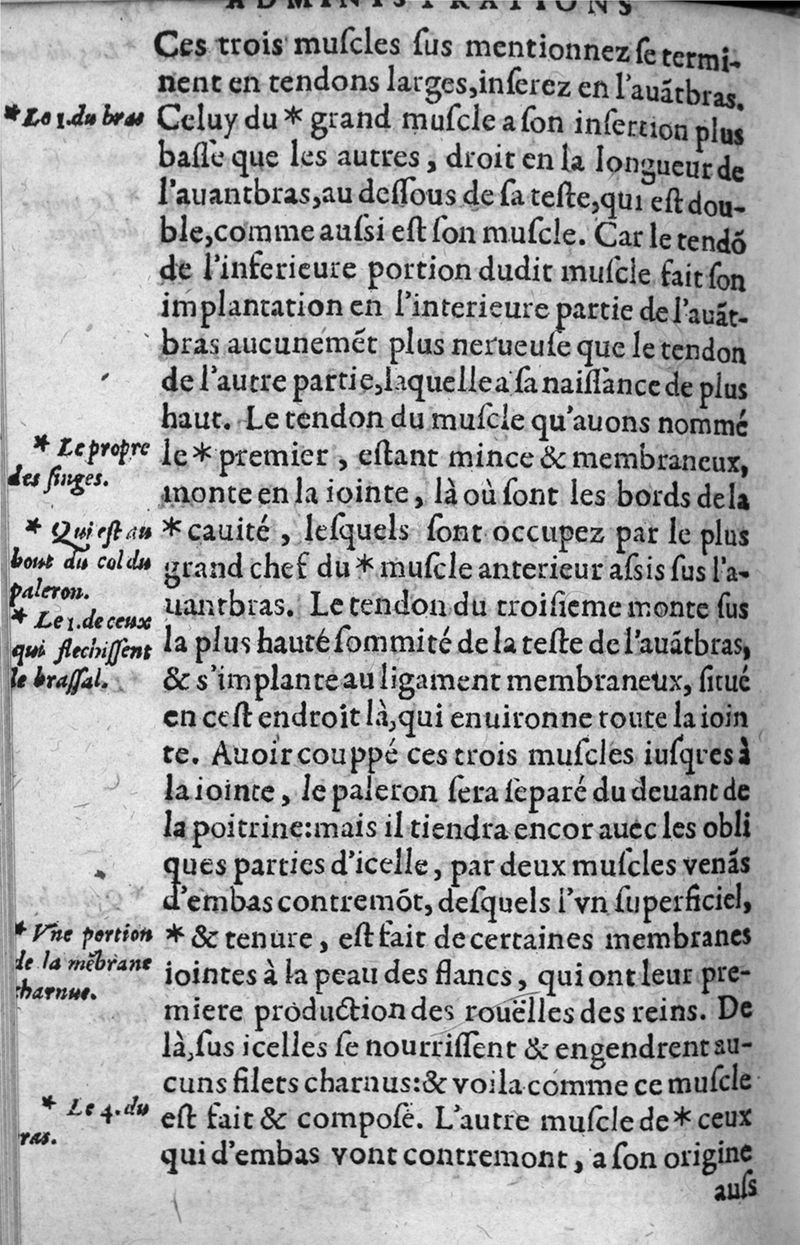 ADMINISTRATIONS
Ces trois muſcles ſus mentionnez ſe termi-
nent en tendons larges,inſerez en l'auãtbras.
*Le 1.du bras
Celuy du * grand muſcle a ſon inſertion plus
baſſe que les autres, droit en la longueur de
l'auantbras,au deſſous de ſa teſte,qui eſt dou-
ble,comme auſsi eſt ſon muſcle. Car le tendõ
de l'inferieure portion dudit muſcle fait ſon
implantation en l'interieure partie de l'auãt-
bras aucunemẽt plus nerueuſe que le tendon
de l'autre partie,laquelle a ſa naiſſance de plus
haut. Le tendon du muſcle qu'auons nommé
* Le propre
des ſinges.
le * premier, eſtant mince & membraneux,
monte en la iointe, là où ſont les bords de la
* Qui eſt au
bout du col du
paleron.
* cauité, leſquels ſont occupez par le plus
grand chef du * muſcle anterieur aſsis ſus l'a-
* Le 1. de ceux
qui flechiſſent
le braſſal.
uantbras. Le tendon du troiſieme monte ſus
la plus hauté ſommité de la teſte de l'auãtbras,
& s'implante au ligament membraneux, ſitué
en ceſt endroit là,qui enuironne toute la ioin
te. Auoir couppé ces trois muſcles iuſques à
la iointe, le paleron ſera ſeparé du deuant de
la poitrine:mais il tiendra encor auec les obli
ques parties d'icelle, par deux muſcles venãs
d'embas contremõt, deſquels l'vn ſuperficiel,
* Vne portion
de la mẽbrane
charnue.
* & tenure, eſt fait de certaines membranes
iointes à la peau des flancs, qui ont leur pre-
miere production des rouëlles des reins. De
là,ſus icelles ſe nourriſſent & engendrent au-
cuns filets charnus:& voila comme ce muſcle
* Le 4. du
ras.
eſt fait & compoſé. L'autre muſcle de * ceux
qui d'embas vont contremont, a ſon origine
auſs